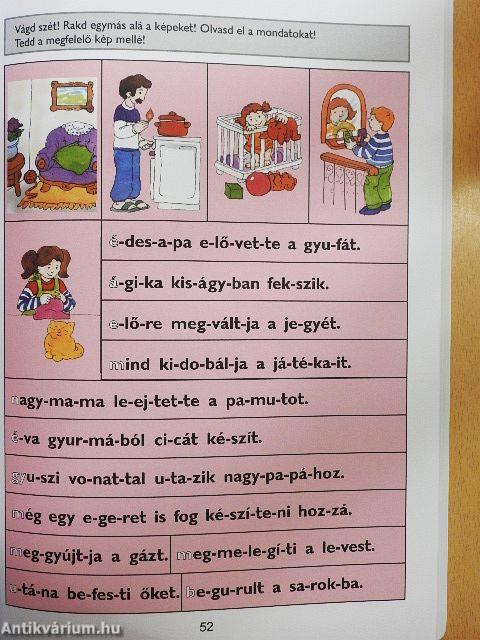 Vágd szét! Rakd egymás alá a képeket! Olvasd el a mondatokat!
Tedd a megfelelő kép mellé!
é-des-a-pa e-lő-vet-te a gyu-fát.
á-gi-ka kis-ágy-ban fek-szik.
e-lő-re meg-vált-ja a je-gyét.
mind ki-do-bál-ja a já-té-ka-it.
nagy-ma-ma le-ej-tet-te a pa-mu-tot.
é-va gyur-má-ból ci-cát ké-szít.
gyu-szi vo-nat-tal u-ta-zik nagy-pa-pá-hoz.
még egy e-ge-ret is fog ké-szí-te-ni hoz-zá.
meg-gyújt-ja a gázt. meg-me-le-gí-ti a le-vest.
u-tá-na be-fes-ti őket. be-gu-rult a sa-rok-ba.
52
Antikvárium.hu